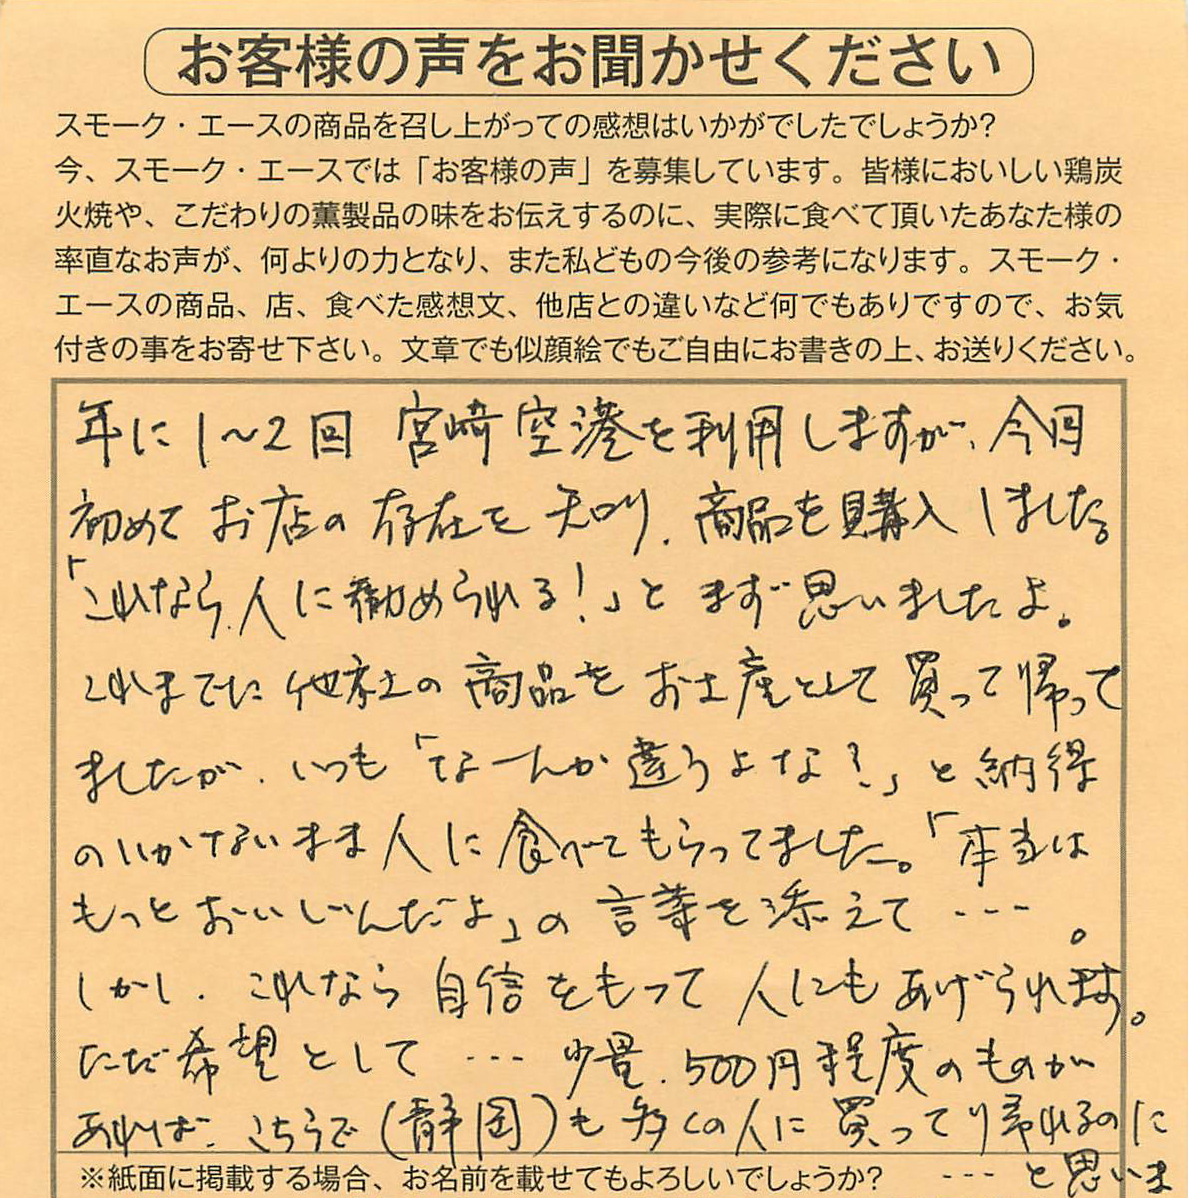 お客様の声をお聞かせください
スモーク・エースの商品を召し上がっての感想はいかがでしたでしょうか?
今、スモーク・エースでは「お客様の声」を募集しています。皆様においしい鶏炭
火焼や、こだわりの薫製品の味をお伝えするのに、実際に食べて頂いたあなた様の
率直なお声が、何よりの力となり、また私どもの今後の参考になります。スモーク・
エースの商品、店、食べた感想文、他店との違いなど何でもありですので、お気
付きの事をお寄せ下さい。文章でも似顔絵でもご自由にお書きの上、お送りください。
年に1～2回 宮崎空港を利用しますが、今回
初めてお店の存在を知り、商品を購入しました。
「これなら、人に勧められる!」とまず思いましたよ。
これまでに他社の商品をお土産として買って帰って
ましたが、いつも「なーんか違うよな?」と納得
のいかないまま人に食べてもらってました。「本当は
もっとおいしいんだよ」の言葉を添えて ---。
しかし、これなら自信をもって人にもあげられます。
ただ希望として --- 少量、500円程度のものが
あれば、こちらで(静岡)も多くの人に買って帰れるのに
--- と思いま
※紙面に掲載する場合、お名前を載せてもよろしいでしょうか?